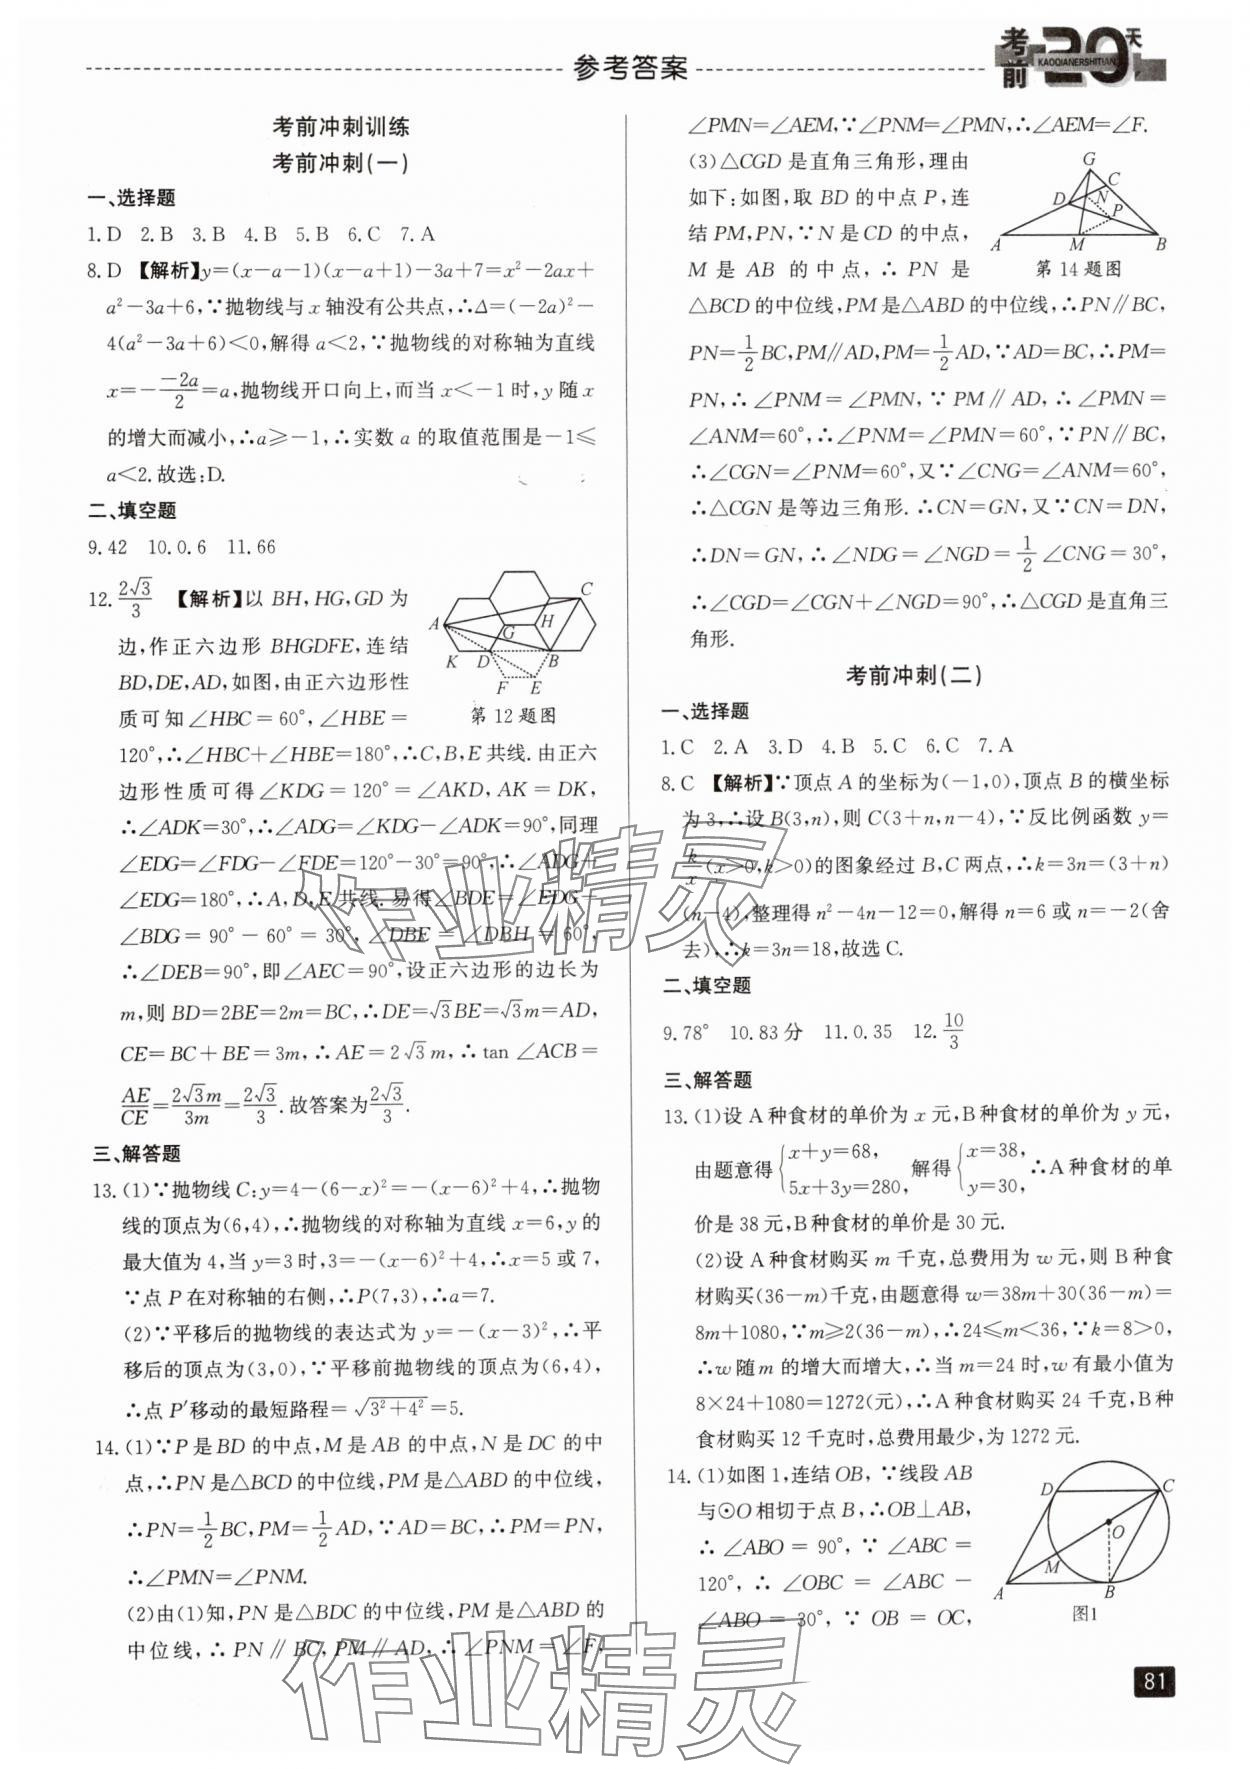 参考答案
考前20天
KAOQIANERSHITIAN
考前冲刺训练
考前冲刺(一)
一、选择题
1.D 2.B 3.B 4.B 5.B 6.C 7.A
8.D 【解析】y=(x-a-1)(x-a+1)-3a+7=x²-2ax+
a²-3a+6,∵抛物线与x轴没有公共点,∴Δ=(-2a)²-
4(a²-3a+6)<0,解得a<2,∵抛物线的对称轴为直线
x=-\frac{-2a}{2}=a,抛物线开口向上,而当x<-1时,y随x
的增大而减小,∴a≥-1,∴实数a的取值范围是-1≤
a<2.故选:D.
二、填空题
9.42 10.0.6 11.66
12.\frac{2√3}{3} 【解析】以BH,HG,GD为
边,作正六边形BHGDFE,连结
BD,DE,AD,如图,由正六边形性
质可知∠HBC=60°,∠HBE=
A C G H K D B F E
第12题图
120°,∴∠HBC+∠HBE=180°,∴C,B,E共线.由正六
边形性质可得∠KDG=120°=∠AKD,AK=DK,
∴∠ADK=30°,∴∠ADG=∠KDG-∠ADK=90°,同理
∠EDG=∠FDG-∠FDE=120°-30°=90°,∴∠ADG+
∠EDG=180°,∴A,D,E共线.易得∠BDE=∠EDG-
∠BDG=90°-60°=30°,∠DBE=∠DBH=60°,
∴∠DEB=90°,即∠AEC=90°,设正六边形的边长为
m,则BD=2BE=2m=BC,∴DE=√3BE=√3m=AD,
CE=BC+BE=3m,∴AE=2√3m,∴tan∠ACB=
\frac{AE}{CE}=\frac{2√3m}{3m}=\frac{2√3}{3}.故答案为\frac{2√3}{3}.
三、解答题
13.(1)∵抛物线C:y=4-(6-x)²=-(x-6)²+4,∴抛物
线的顶点为(6,4),∴抛物线的对称轴为直线x=6,y的
最大值为4,当y=3时,3=-(x-6)²+4,∴x=5或7,
∵点P在对称轴的右侧,∴P(7,3),∴a=7.
(2)∵平移后的抛物线的表达式为y=-(x-3)²,∴平
移后的顶点为(3,0),∵平移前抛物线的顶点为(6,4),
∴点P′移动的最短路程=√(3²+4²)=5.
14.(1)∵P是BD的中点,M是AB的中点,N是DC的中
点,∴PN是△BCD的中位线,PM是△ABD的中位线,
∴PN=\frac{1}{2}BC,PM=\frac{1}{2}AD,∵AD=BC,∴PM=PN,
∴∠PMN=∠PNM.
(2)由(1)知,PN是△BDC的中位线,PM是△ABD的
中位线,∴PN∥BC,PM∥AD,∴∠PNM=∠F,
∠PMN=∠AEM,∵∠PNM=∠PMN,∴∠AEM=∠F.
(3)△CGD是直角三角形,理由
如下:如图,取BD的中点P,连
结PM,PN,∵N是CD的中点,
M是AB的中点,∴PN是
G C D N P A M B
第14题图
△BCD的中位线,PM是△ABD的中位线,∴PN∥BC,
PN=\frac{1}{2}BC,PM∥AD,PM=\frac{1}{2}AD,∵AD=BC,∴PM=
PN,∴∠PNM=∠PMN,∵PM∥AD,∴∠PMN=
∠ANM=60°,∴∠PNM=∠PMN=60°,∵PN∥BC,
∴∠CGN=∠PNM=60°,又∵∠CNG=∠ANM=60°,
∴△CGN是等边三角形.∴CN=GN,又∵CN=DN,
∴DN=GN,∴∠NDG=∠NGD=\frac{1}{2}∠CNG=30°,
∴∠CGD=∠CGN+∠NGD=90°,∴△CGD是直角三
角形.
考前冲刺(二)
一、选择题
1.C 2.A 3.D 4.B 5.C 6.C 7.A
8.C 【解析】∵顶点A的坐标为(-1,0),顶点B的横坐标
为3,∴设B(3,n),则C(3+n,n-4),∵反比例函数y=
\frac{k}{x}(x>0,k>0)的图象经过B,C两点,∴k=3n=(3+n)
(n-4),整理得n²-4n-12=0,解得n=6或n=-2(舍
去),∴k=3n=18,故选C.
二、填空题
9.78° 10.83分 11.0.35 12.\frac{10}{3}
三、解答题
13.(1)设A种食材的单价为x元,B种食材的单价为y元,
由题意得{x+y=68, 5x+3y=280, 解得{x=38, y=30, ∴A种食材的单
价是38元,B种食材的单价是30元.
(2)设A种食材购买m千克,总费用为w元,则B种食
材购买(36-m)千克,由题意得w=38m+30(36-m)=
8m+1080,∵m≥2(36-m),∴24≤m<36,∵k=8>0,
∴w随m的增大而增大,∴当m=24时,w有最小值为
8×24+1080=1272(元),∴A种食材购买24千克,B种
食材购买12千克时,总费用最少,为1272元.
14.(1)如图1,连结OB,∵线段AB
与⊙O相切于点B,∴OB⊥AB,
∴∠ABO=90°,∵∠ABC=
120°,∴∠OBC=∠ABC-
∠ABO=30°,∵OB=OC,
D C O M A B
图1
作业精灵
作业精灵
81